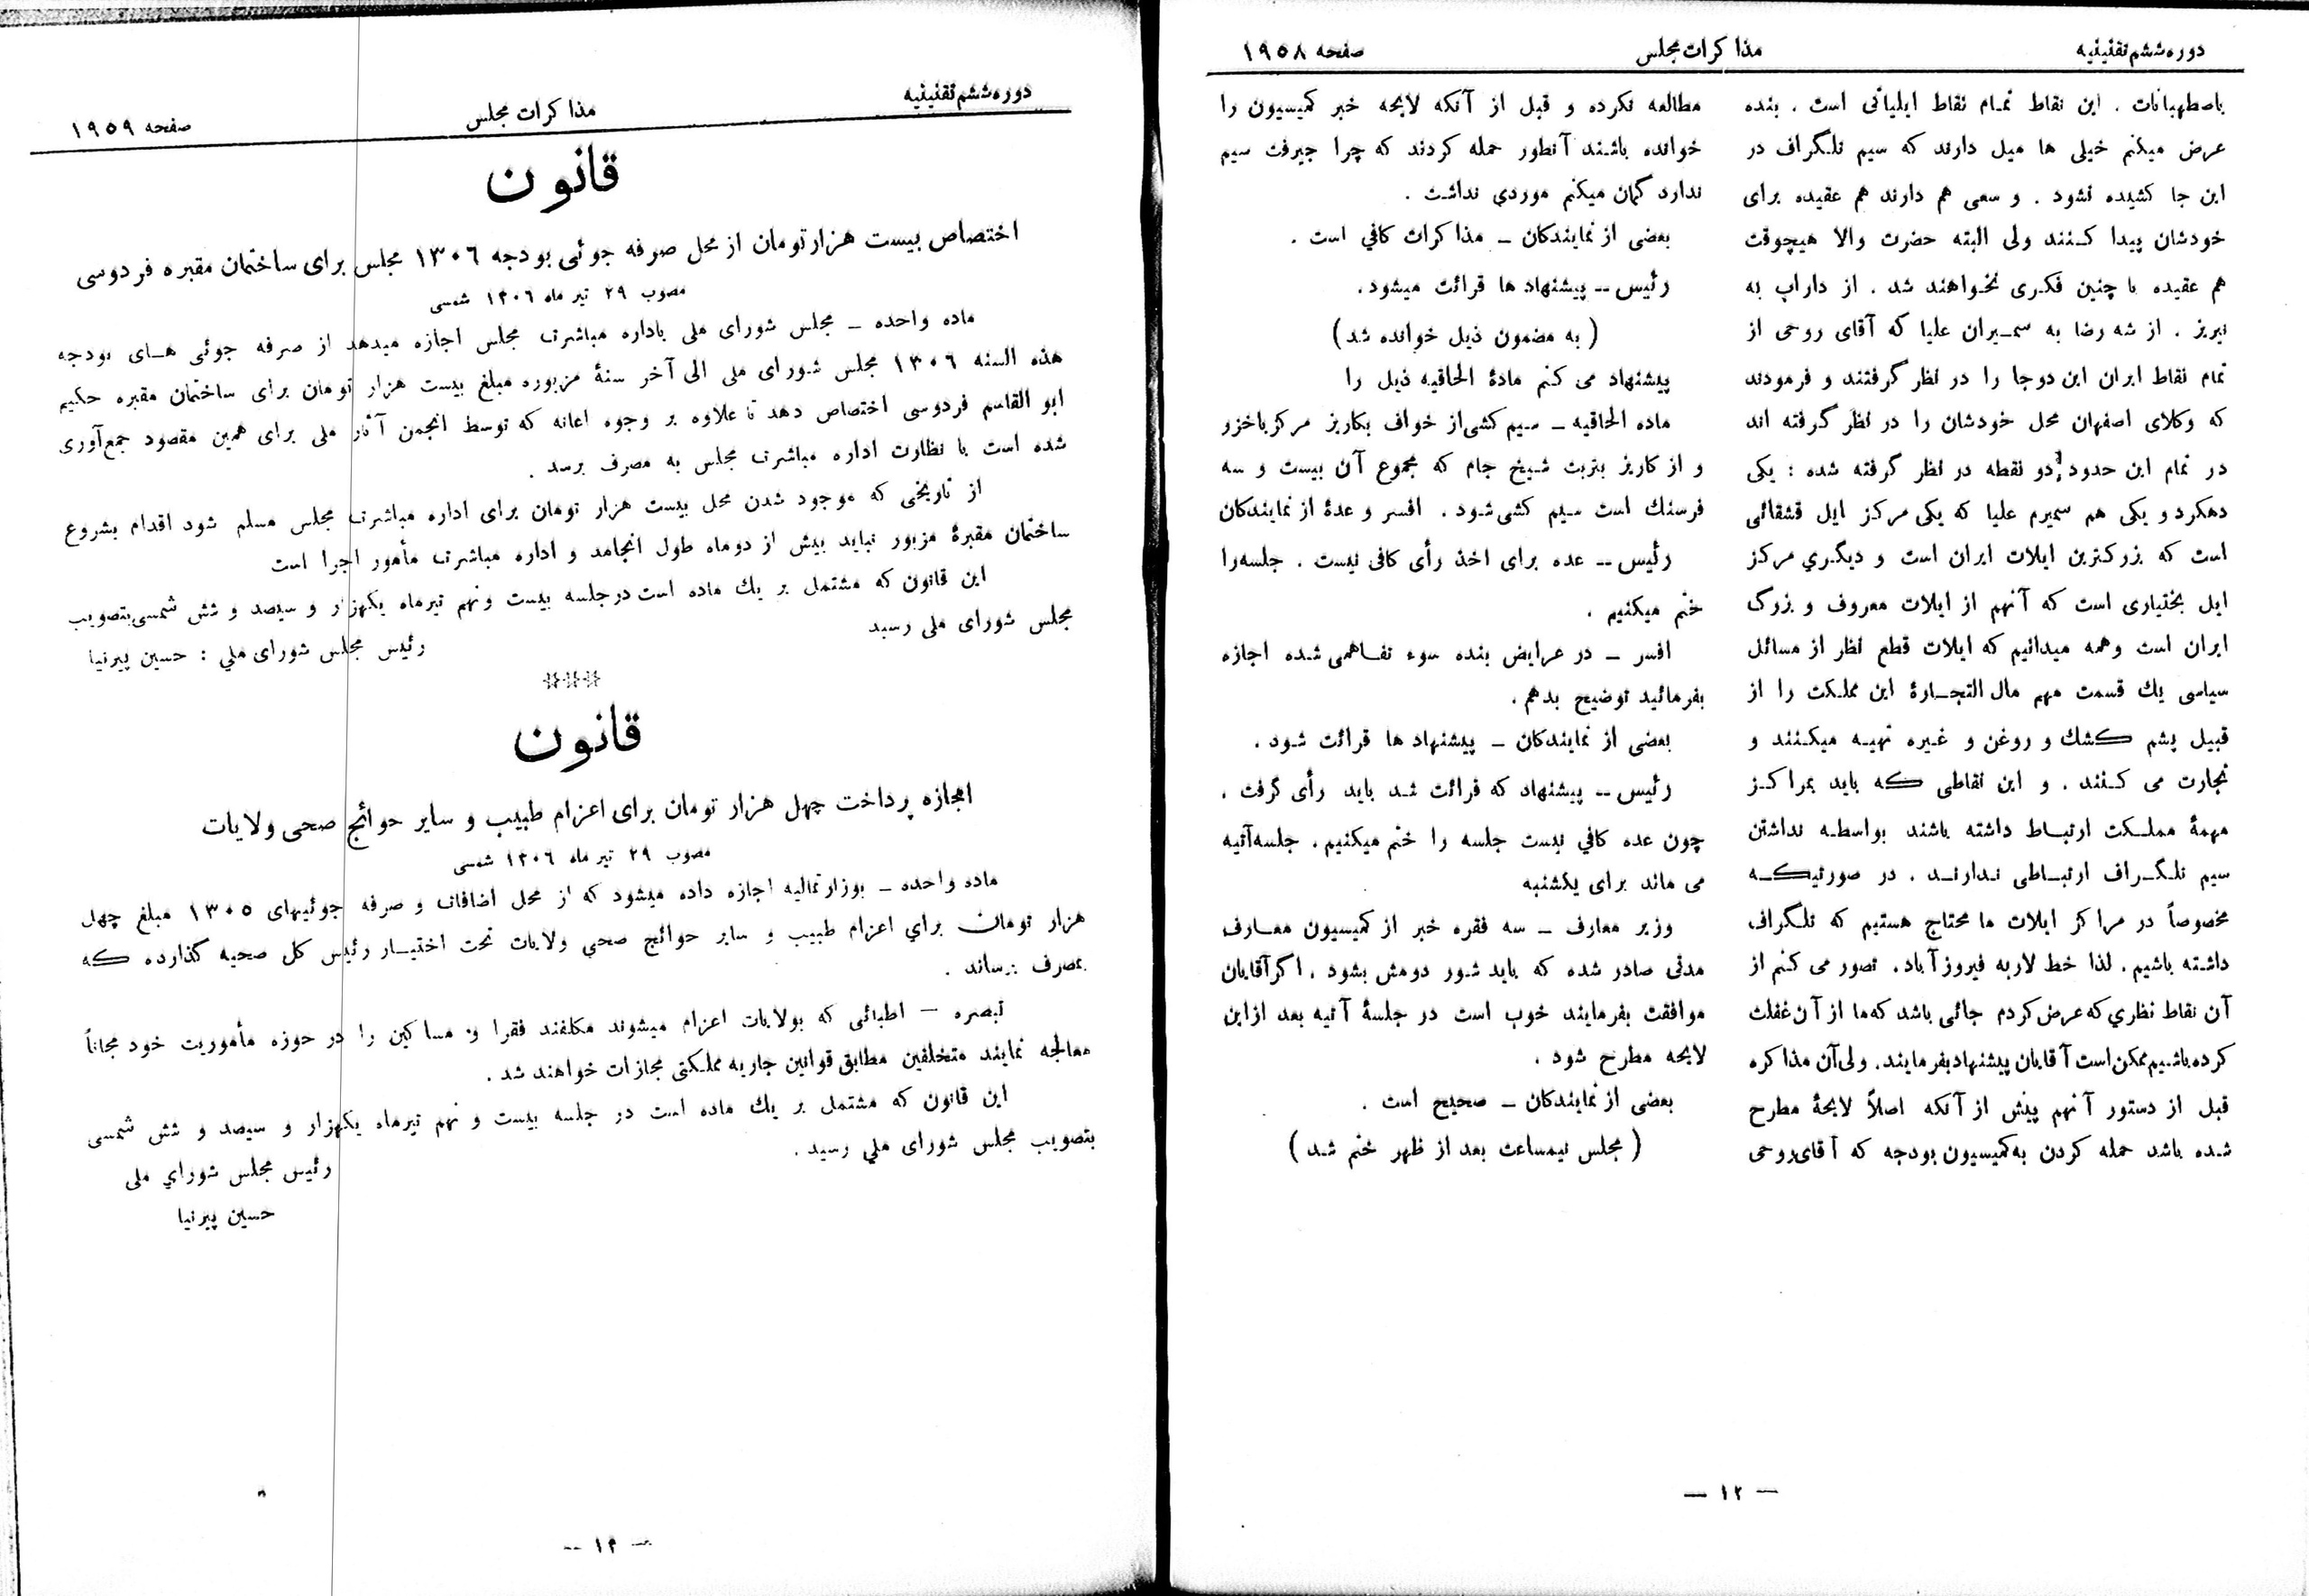 دوره ششم تقنینیه
مذاکرات مجلس
صفحه ۱۹۵۸
باصطهبانات . این نقاط تمام نقاط ایلیاتی است . بنده
عرض میکنم خیلی ها میل دارند که سیم تلگراف در
این جا کشیده نشود . و سعی هم دارند هم عقیده برای
خودشان پیدا کنند ولی البته حضرت والا هیچوقت
هم عقیده با چنین فکری نخواهند شد . از داراب به
نیریز . از شه رضا به سمیران علیا که آقای روحی از
تمام نقاط ایران این دوجا را در نظر گرفتند و فرمودند
که وکلای اصفهان محل خودشان را در نظر گرفته اند
در تمام این حدود دو نقطه در نظر گرفته شده : یکی
دهکرد و یکی هم سمیرم علیا که یکی مرکز ایل قشقائی
است که بزرکترین ایلات ایران است و دیگری مرکز
ایل بختیاری است که آنهم از ایلات معروف و بزرگ
ایران است وهمه میدانیم که ایلات قطع نظر از مسائل
سیاسی یك قسمت مهم مال التجارهٔ این مملکت را از
قبیل پشم کشك و روغن و غیره تهیه میکنند و
تجارت می کنند . و این نقاطی که باید بمراکز
مهمهٔ مملکت ارتباط داشته باشند بواسطه نداشتن
سیم تلگراف ارتباطی ندارند . در صورتیکه
مخصوصاً در مراکز ایلات ما محتاج هستیم که تلگراف
داشته باشیم . لذا خط لاربه فیروزآباد . تصور می کنم از
آن نقاط نظری که عرض کردم جائی باشد که ما از آن غفلت
کرده باشیم ممکن است آقایان پیشنهاد بفرمایند . ولی آن مذاکره
قبل از دستور آنهم پیش از آنکه اصلاً لایحهٔ مطرح
شده باشد حمله کردن به کمیسیون بودجه که آقای روحی
مطالعه نکرده و قبل از آنکه لایحه خبر کمیسیون را
خوانده باشند آنطور حمله کردند که چرا جیرفت سیم
ندارد گمان میکنم موردی نداشت .
بعضی از نمایندکان ـ مذاکرات کافی است .
رئیس ــ پیشنهاد ها قرائت میشود .
( به مضمون ذیل خوانده شد )
پیشنهاد می کنم مادهٔ الحاقیه ذیل را
ماده الحاقیه ـ سیم کشی از خواف بکاریز مرکز باخزر
و از کاریز بتربت شیخ جام که مجموع آن بیست و سه
فرسنك است سیم کشی شود . افسر و عدهٔ از نمایندکان
رئیس ــ عده برای اخذ رأی کافی نیست . جلسه را
ختم میکنیم .
افسر ـ در عرایض بنده سوء تفاهمی شده اجازه
بفرمائید توضیح بدهم .
بعضی از نمایندکان ـ پیشنهاد ها قرائت شود .
رئیس ــ پیشنهاد که قرائت شد باید رأی گرفت .
چون عده کافی نیست جلسه را ختم میکنیم . جلسه آتیه
می ماند برای یکشنبه
وزیر معارف ـ سه فقره خبر از کمیسیون معارف
مدتی صادر شده که باید شور دومش بشود . اکر آقایان
موافقت بفرمایند خوب است در جلسهٔ آتیه بعد از این
لایحه مطرح شود .
بعضی از نمایندکان ـ صحیح است .
( مجلس نیمساعت بعد از ظهر ختم شد )
— ۱۲ —
دوره ششم تقنینیه
مذاکرات مجلس
صفحه ۱۹۵۹
قانون
اختصاص بیست هزار تومان از محل صرفه جوئی بودجه ۱۳۰۶ مجلس برای ساختمان مقبره فردوسی
مصوب ۲۹ تیر ماه ۱۳۰۶ شمسی
ماده واحده ـ مجلس شورای ملی باداره مباشرت مجلس اجازه میدهد از صرفه جوئی های بودجه
هذه السنه ۱۳۰۶ مجلس شورای ملی الی آخر سنهٔ مزبوره مبلغ بیست هزار تومان برای ساختمان مقبره حکیم
ابو القاسم فردوسی اختصاص دهد تا علاوه بر وجوه اعانه که توسط انجمن آثار ملی برای همین مقصود جمع آوری
شده است با نظارت اداره مباشرت مجلس به مصرف برسد .
از تاریخی که موجود شدن محل بیست هزار تومان برای اداره مباشرت مجلس مسلم شود اقدام بشروع
ساختمان مقبرهٔ مزبور نباید بیش از دوماه طول انجامد و اداره مباشرت مأمور اجرا است
این قانون که مشتمل بر یك ماده است در جلسه بیست ونهم تیرماه یکهزار و سیصد و شش شمسی بتصویب
مجلس شورای ملی رسید
رئیس مجلس شورای ملی : حسین پیرنیا
***
قانون
اجازه پرداخت چهل هزار تومان برای اعزام طبیب و سایر حوائج صحی ولایات
مصوب ۲۹ تیر ماه ۱۳۰۶ شمسی
ماده واحده ـ بوزارتمالیه اجازه داده میشود که از محل اضافات و صرفه جوئیهای ۱۳۰۵ مبلغ چهل
هزار تومان برای اعزام طبیب و سایر حوائج صحی ولایات تحت اختیار رئیس کل صحیه گذارده که
بمصرف برساند .
تبصره — اطبائی که بولایات اعزام میشوند مکلفند فقرا و مساکین را در حوزه مأموریت خود مجاناً
معالجه نمایند متخلفین مطابق قوانین جاریه مملکتی مجازات خواهند شد .
این قانون که مشتمل بر یك ماده است در جلسه بیست و نهم تیرماه یکهزار و سیصد و شش شمسی
بتصویب مجلس شورای ملی رسید .
رئیس مجلس شورای ملی
حسین پیرنیا
— ۱۳ —